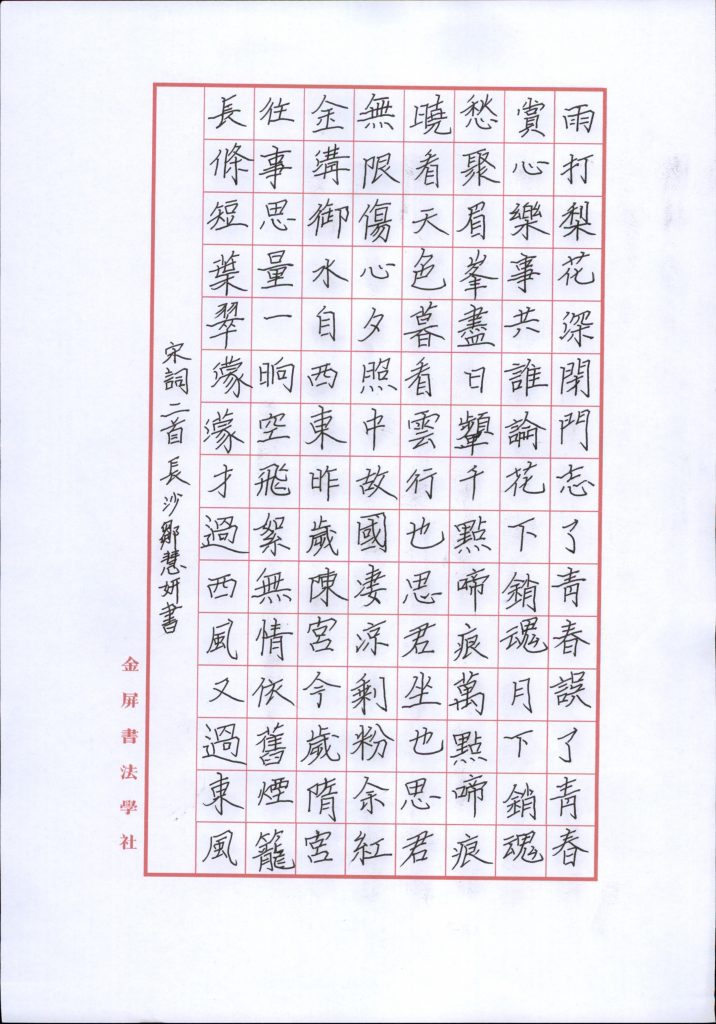 雨打梨花深閉門志了青春誤了青春
賞心樂事共誰論花下銷魂月下銷魂
愁聚眉峯盡日顰千點啼痕萬點啼痕
曉看天色暮看雲行也思君坐也思君
無限傷心夕照中故國凄涼剩粉余紅
金溝御水自西東昨歲陳宮今歲隋宮
往事思量一晌空飛絮無情依舊煙籠
長條短葉翠濛濛才過西風又過東風
宋詞二首 長沙鄒慧妍書
金屏書法學社